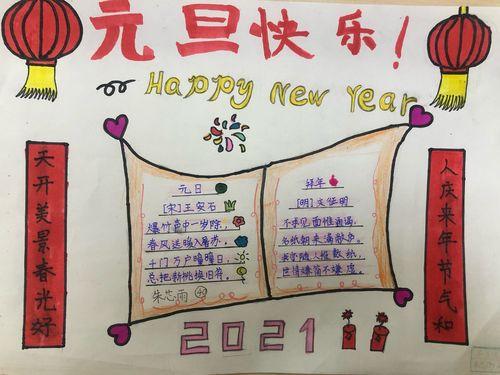 元旦快乐!
Happy New Year
天开美景春光好
元日
[宋]王安石
爆竹声中一岁除,
春风送暖入屠苏。
千门万户曈曈日,
总把新桃换旧符。
朱芯雨 40
拜年
[明]文征明
不求见面惟通谒,
名纸朝来满敝庐。
我亦随人投数纸,
世情嫌简不嫌虚。
人庆来年节气和
2021